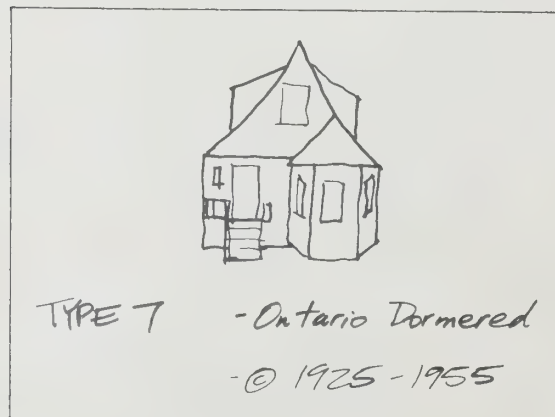 TYPE 7 - Ontario Dormered
- © 1925-1955